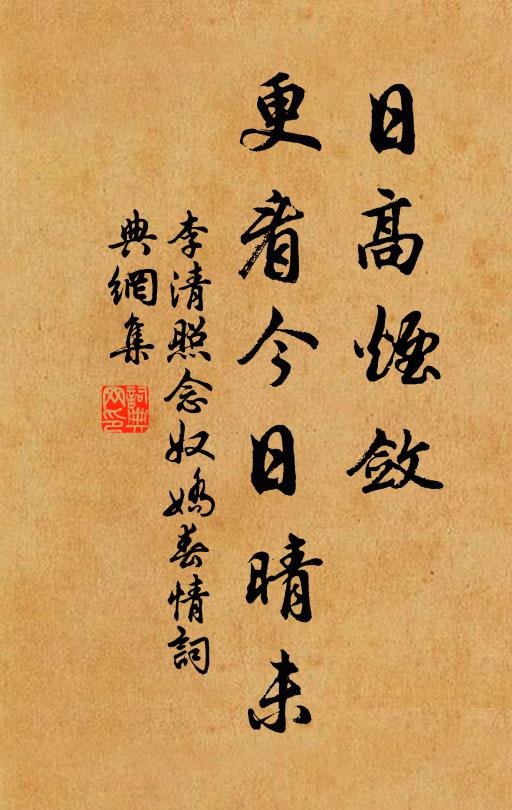 日高煙斂
更看今日晴未
李清照念奴嬌春情詞
典網集
詞典網印